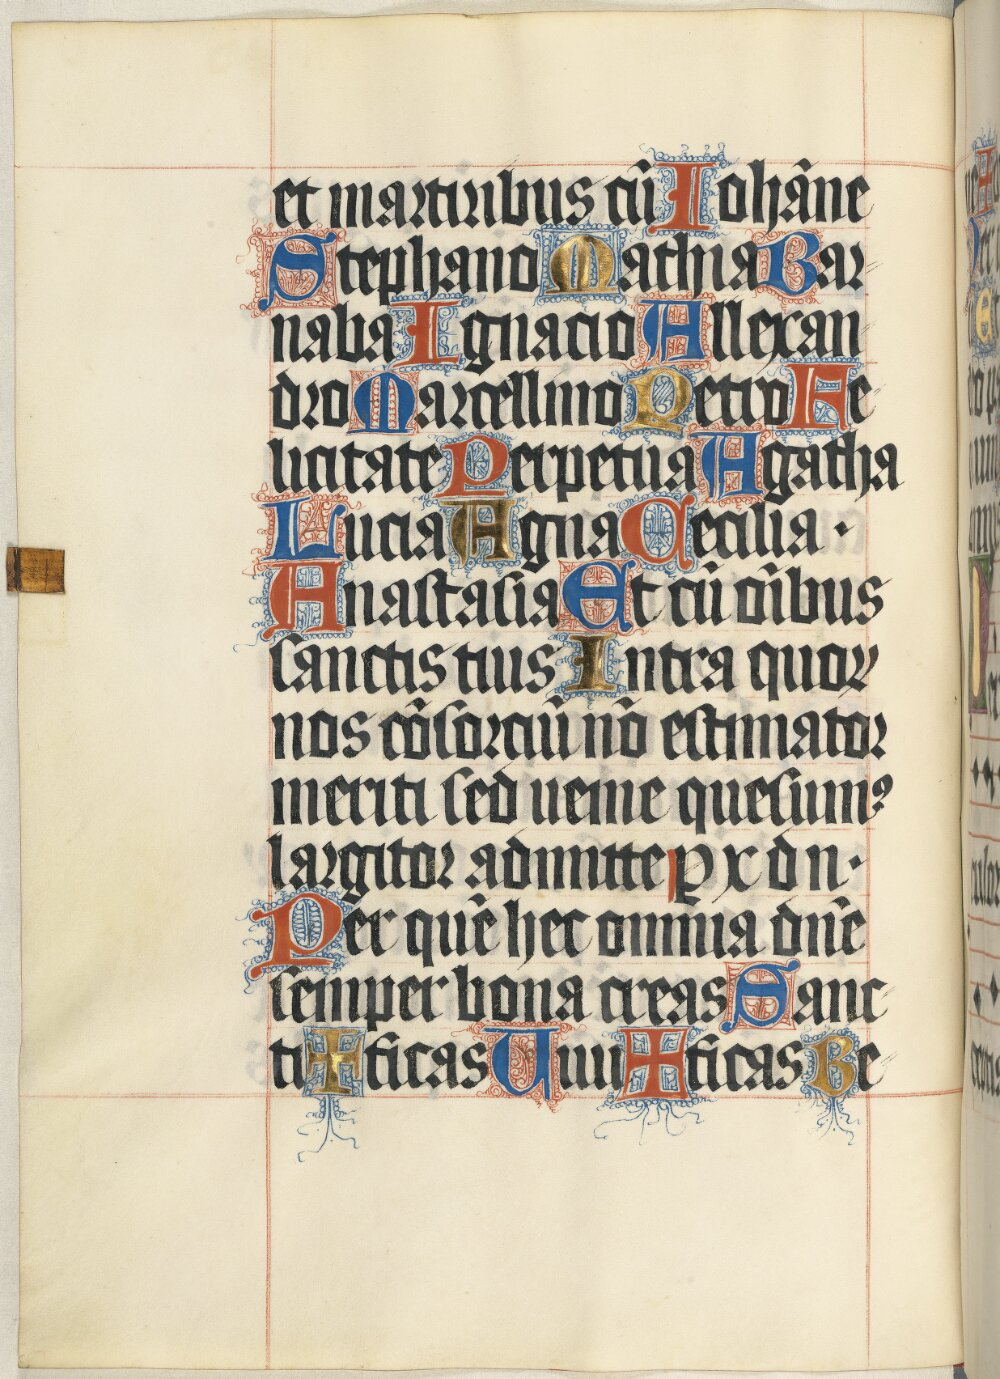 et martiribus cū Iohāne
Stephano Mathia Bar
naba Ignacio Allexan
dro Marcellino Petro Fe
licitate Perpetua Agatha
Lucia Agna Cecilia ·
Anastasia Et cū oībus
sanctis tuis Intra quoꝝ
nos cōsorciū nō estimator
meriti sed uenie quesumꝰ
largitor admitte p x dn·
Per quē hec omnia dn̄e
semper bona creas Sanc
ti✠ficas Uiui✠ficas Be